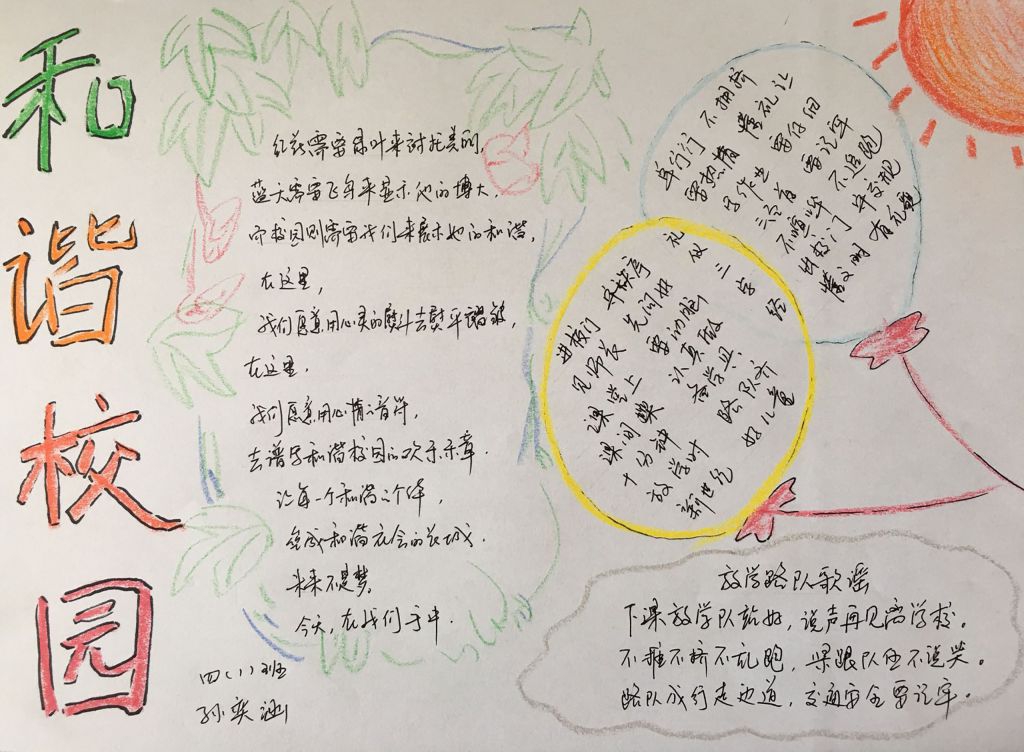 和谐校园
红花需要绿叶来衬托美丽,
蓝天需要飞鸟来显示他的博大,
而校园则需要我们来展示她的和谐,
在这里,
我们愿意用心灵的熨斗去熨平
在这里,
我们愿意用心情的音符,
去谱写和谐校园的欢乐乐章.
让每一个和谐的个体,
组成和谐社会的长城.
未来不是梦,
今天,在我们手中.
四(1)班
孙奕涵
礼仪三字经
进校门 守秩序
见师长 先问好
课堂上 要听
课间操 认真做
十分钟 备学具
放学时 路队齐
新世纪 好儿童
单行行 不拥挤
要热情 懂礼让
写作业 要仔细
三字首 要记牢
不喧哗 不追跑
出校门 守交规
懂文明 有礼貌
放学路队歌谣
下课放学队站好,说声再见离学校。
不推不挤不乱跑,紧跟队伍不说笑。
路队成行走边道,交通安全要记牢。